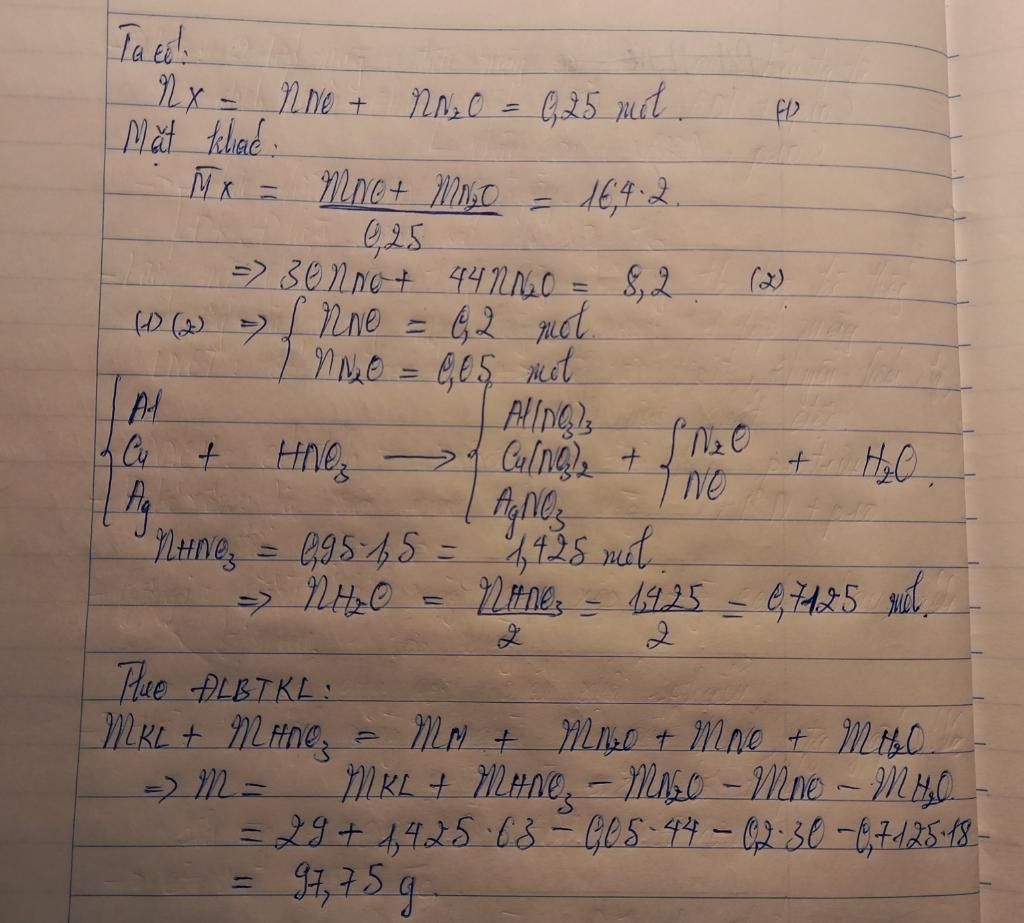 Ta có:
nX = nNO + nN₂O = 0,25 mol. (1)
Mặt khác:
M̄X = (mNO + mN₂O) / 0,25 = 16,4·2.
=> 30nNO + 44nN₂O = 8,2. (2)
(1)(2) => { nNO = 0,2 mol.
nN₂O = 0,05 mol
{ Al Cu Ag + HNO₃ → { Al(NO₃)₃ Cu(NO₃)₂ AgNO₃ + { N₂O NO + H₂O.
nHNO₃ = 0,95·1,5 = 1,425 mol.
=> nH₂O = nHNO₃/2 = 1,425/2 = 0,7125 mol.
Theo ĐLBTKL:
mKL + mHNO₃ = mM + mN₂O + mNO + mH₂O.
=> m = mKL + mHNO₃ - mN₂O - mNO - mH₂O
= 29 + 1,425·63 - 0,05·44 - 0,2·30 - 0,7125·18
= 97,75 g.